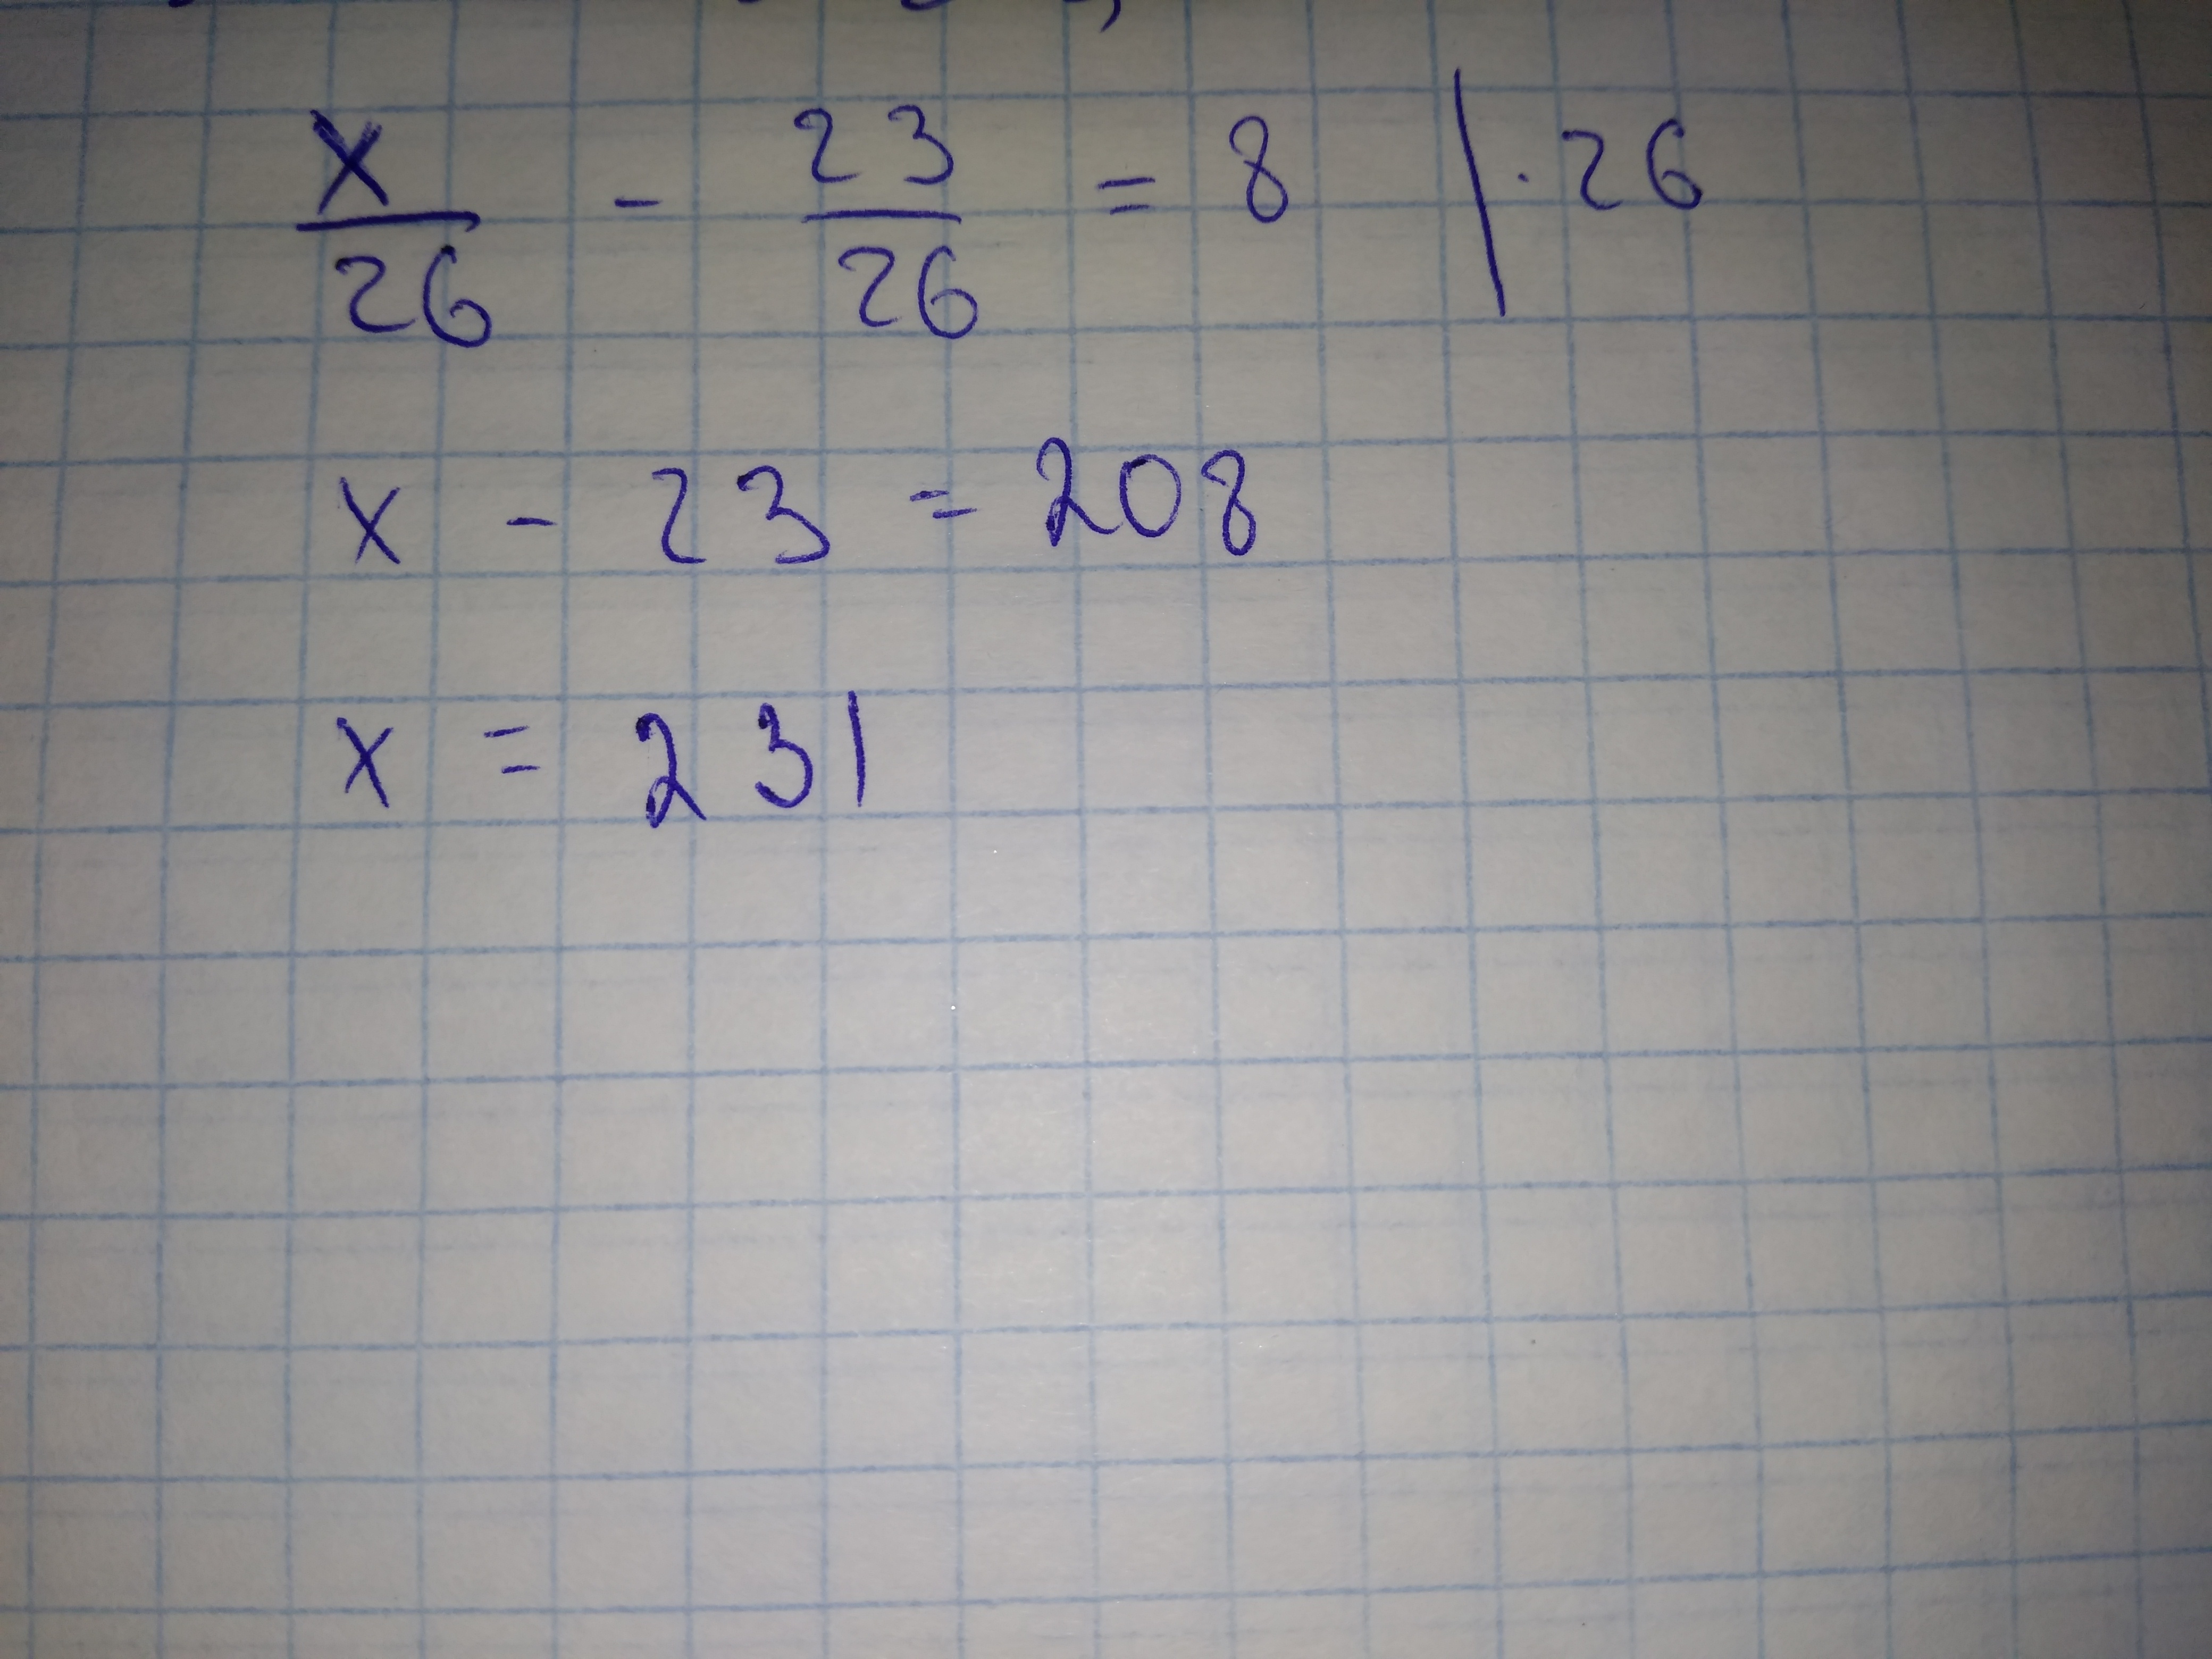 x/26 - 23/26 = 8 | · 26
x - 23 = 208
x = 231